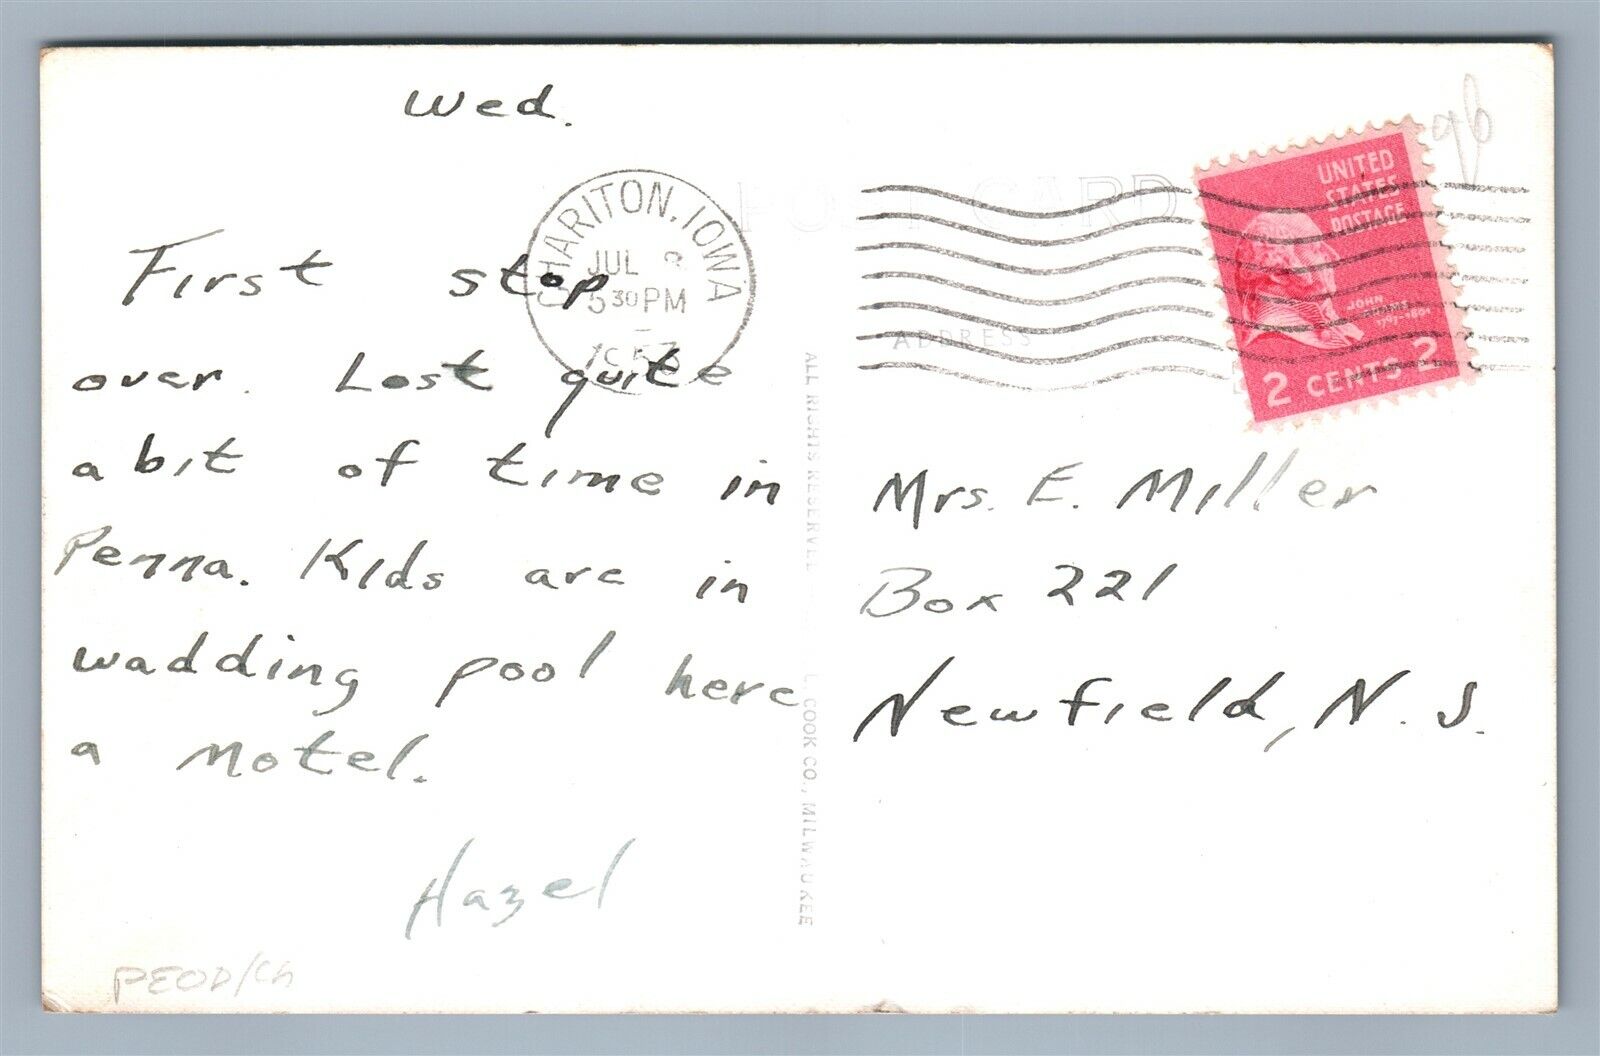 Wed.
First stop
over. Lost quite
a bit of time in
Penna. Kids are in
wadding pool here
a motel.
Hazel
PEOD/Ch
CHARITON, IOWA
JUL
5 30 PM
POST CARD
ADDRESS
ALL RIGHTS RESERVED
L. COOK CO., MILWAUKEE
UNITED
STATES
POSTAGE
JOHN
2 CENTS 2
Mrs. E. Miller
Box 221
Newfield, N. J.